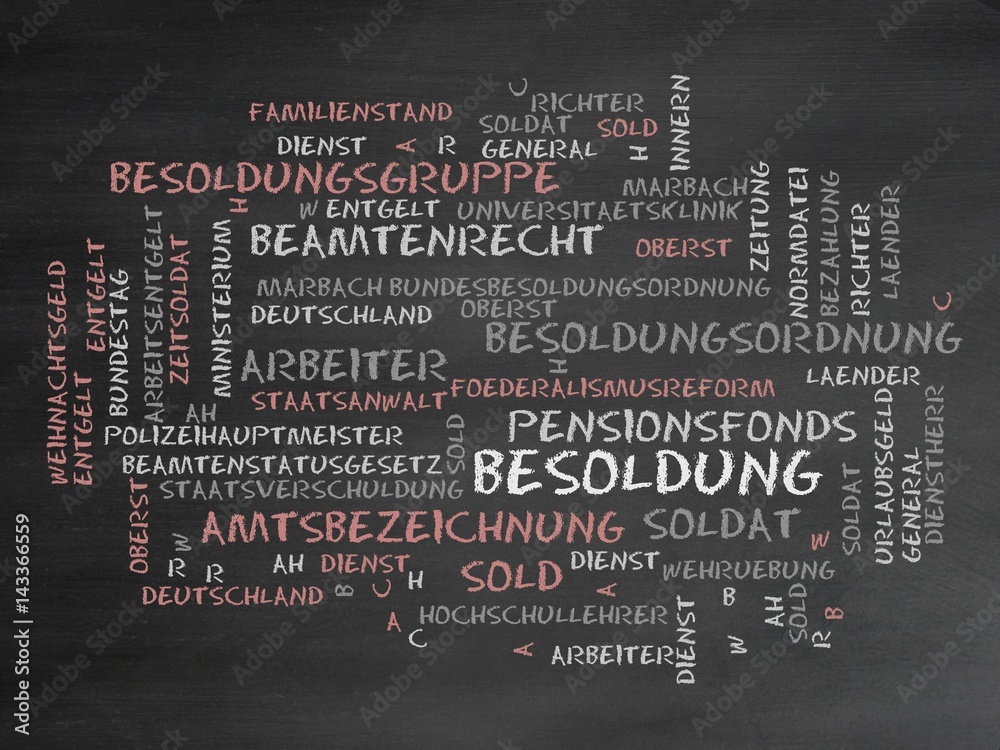 C
RICHTER
INNERN
FAMILIENSTAND
SOLDAT
SOLD
DIENST
A
R
GENERAL
H
BESOLDUNGSGRUPPE
MARBACH
ZEITUNG
NORMDATEI
BEZAHLUNG
RICHTER
LAENDER
H
W
ENTGELT
UNIVERSITAETSKLINIK
BEAMTENRECHT
OBERST
WEIHNACHTSGELD
ENTGELT
ENTGELT
BUNDESTAG
ARBEITSENTGELT
ZEITSOLDAT
MINISTERIUM
MARBACH
BUNDESBESOLDUNGSORDNUNG
C
DEUTSCHLAND
OBERST
BESOLDUNGSORDNUNG
ARBEITER
H
FOEDERALISMUSREFORM
LAENDER
STAATSANWALT
AH
PENSIONSFONDS
POLIZEIHAUPTMEISTER
SOLD
BEAMTENSTATUSGESETZ
BESOLDUNG
STAATSVERSCHULDUNG
SOLDAT
URLAUBSGELD
GENERAL
DIENSTHERR
OBERST
AMTSBEZEICHNUNG
SOLDAT
W
W
R
R
AH
DIENST
SOLD
DIENST
WEHRUEBUNG
DEUTSCHLAND
B
C
H
A
B
AH
SOLD
B
R
A
C
HOCHSCHULLEHRER
A
ARBEITER
DIENST
W
Adobe Stock | #143366559
Adobe Stock